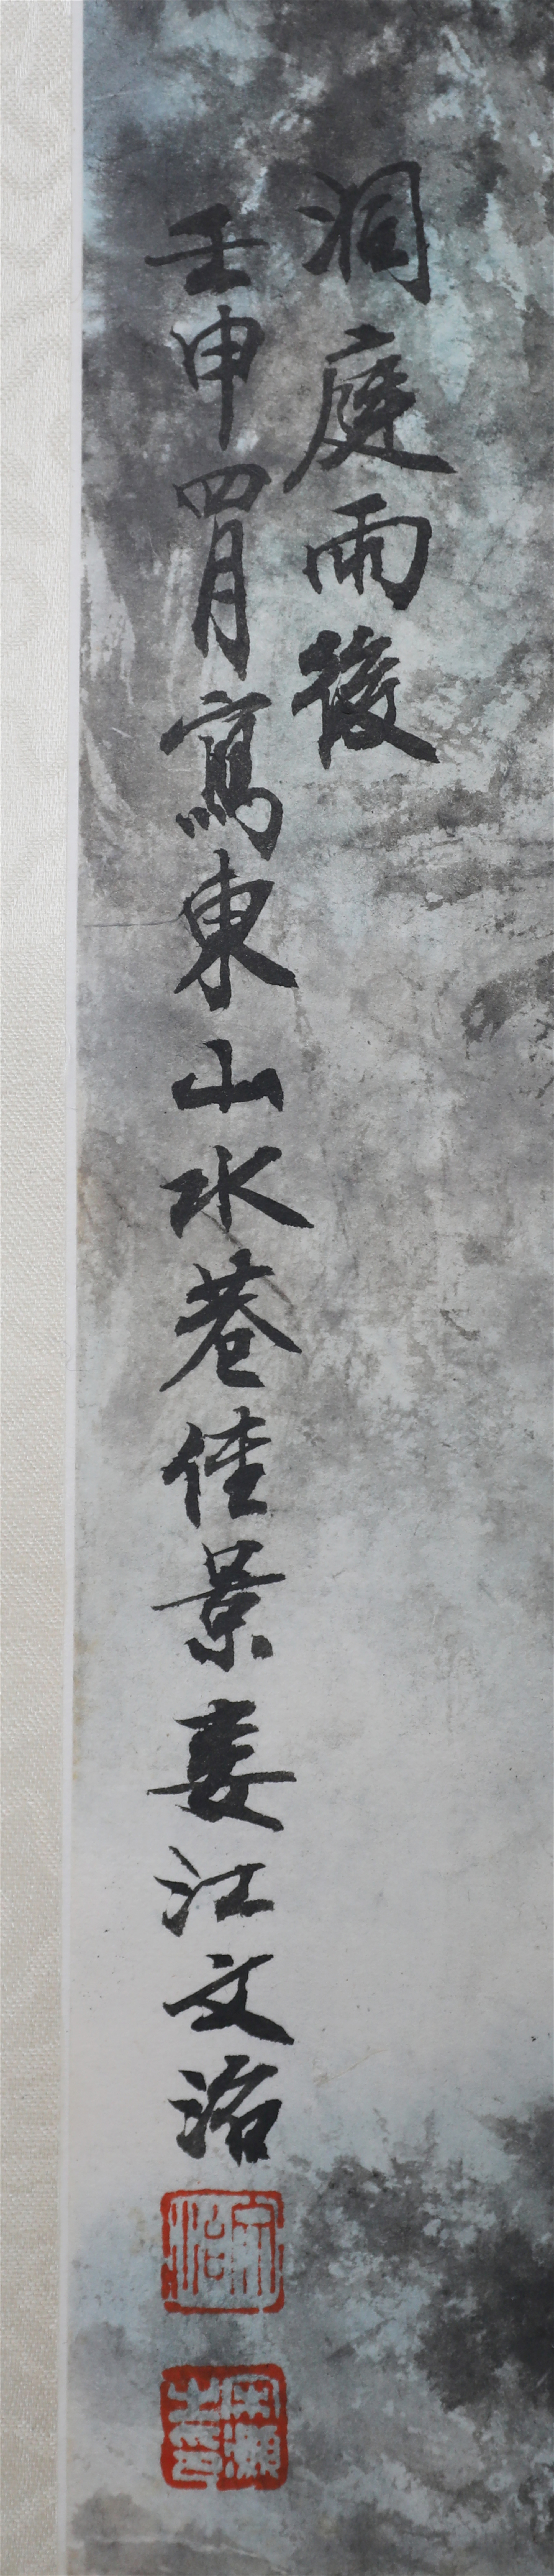 洞庭雨後
壬申四月寫東山水巷佳景婁江文治